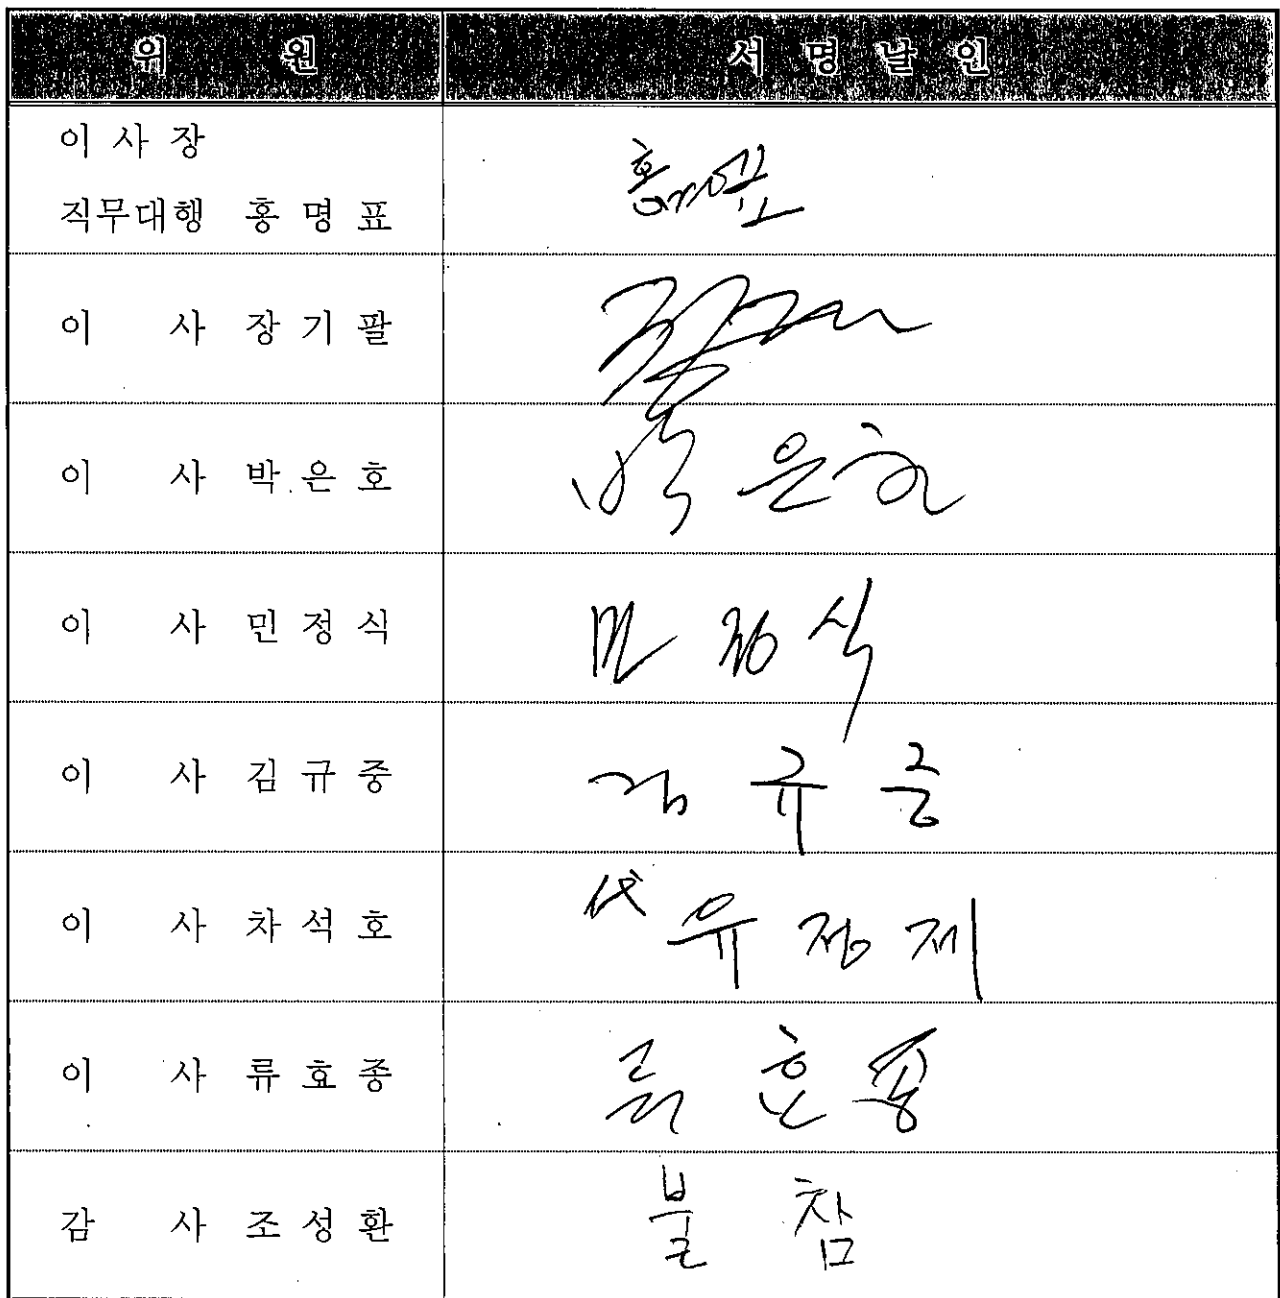 위 원 서 명 날 인
이 사 장
직무대행 홍 명 표 홍명표
이 사 장 기 팔
이 사 박 은 호 박 은 호
이 사 민 정 식 민 정 식
이 사 김 규 중 김 규 중
이 사 차 석 호 代 유 정 제
이 사 류 효 종 류 효 종
감 사 조 성 환 불 참